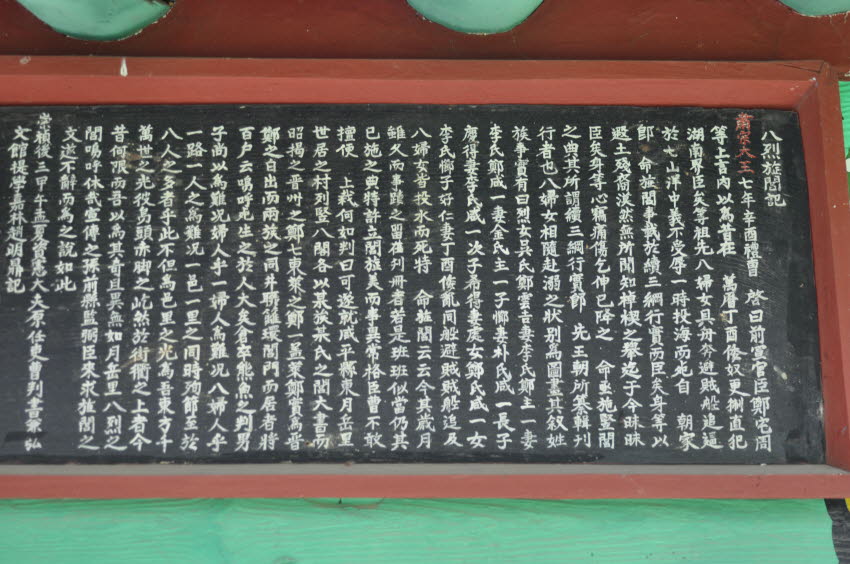 八烈旌閭記
肅宗大王七年辛酉禮曹 啓曰前宣官臣鄭宅周
等上言內以爲昔在 萬曆丁酉倭奴更猘直犯
湖南臣矣等祖先八婦女具舟夯避賊船追逼
於七山洋中義不受辱一時投海而死自 朝家
卽 命旌閭事載於續三綱行實而臣矣身等以
遐土殘裔漠然無所聞知棹楔之擧迄于今昧昧
臣矣身等心竊痛傷乞伸已降之 命亟施竪閭
之典其所謂續三綱行實卽 先王朝所纂輯刊
行者也八婦女相隨赴溺之狀別爲圖畫其叙姓
族事實有曰烈女吳氏鄭雲吉妻李氏鄭主一妻
李氏鄭咸一妻金氏主一子妻朴氏咸一長子
慶得妻李氏咸一次子希得妻處女鄭氏咸一女
李氏子好仁妻丁酉倭亂同船避賊賊船追及
八婦女皆投水而死特 命旌閭云云今其歲月
雖久而事蹟之昭在刊冊者若是班班似當仍其
已施之典特許立閭旌美而事異常格臣曹不敢
擅便 上裁何如判曰可遂就咸平縣東月岳里
世居之村列竪八閭各以某族某氏之閭大書而
昭揭之晋州之鄭也東萊之鄭一鄭實爲晋
鄭之自出而兩族之同井聯籬環閭門而居者將
百戶云嗚呼死生之於人大矣倉卒能魚之判男
子尚以爲難况婦人乎一婦人爲難况八婦人乎
一路一人之爲難况一邑一里之同時殉節至於
八人之多者乎此不但爲邑里之光爲吾東方千
萬世之光彼烏頭赤脚之屹然於街衢之上者今
昔何限而吾以爲其奇且異無如月岳里八烈之
閭嗚呼休哉宣傳之孫前縣監弼臣來求旌閭之
文遂不辭而爲之說如此
崇禎後三甲午孟夏資憲大夫原任吏曹判書兼弘
文館提學嘉林趙明鼎記